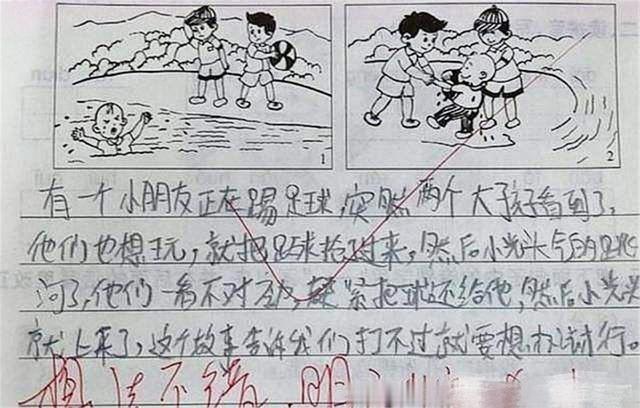 1
2
有一个小朋友正在踢足球,突然两个大孩看到了,
他们也想玩,就把足球抢过来,然后小光头气的跳
河了,他们一看不对劲,紧把球还给他,然后小光头
就上来了,这个故事告诉我们打不过就要想办法行。
想法不错,明